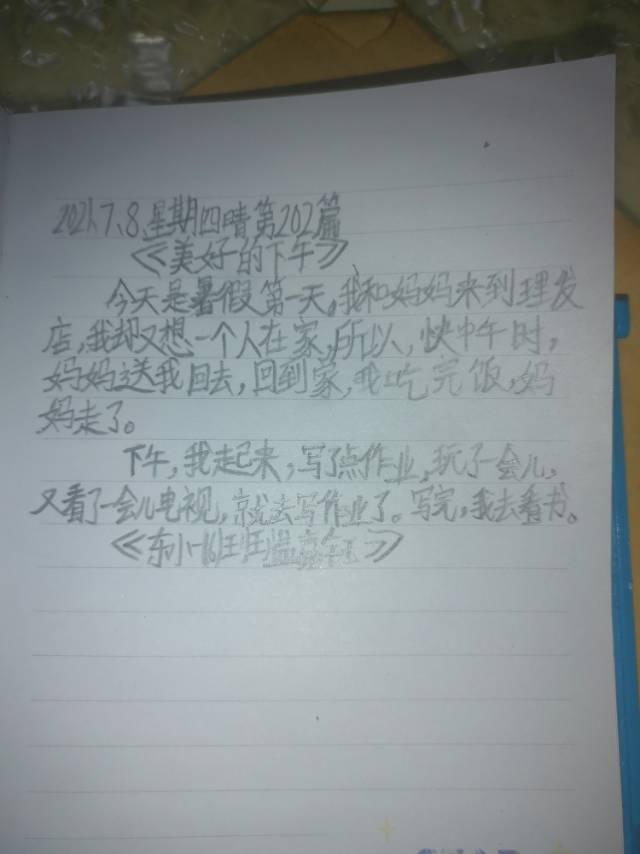 2021.7.8.星期四晴第202篇
《美好的下午》
今天是暑假第一天,我和妈妈来到理发
店,我却又想一个人在家,所以,快中午时,
妈妈送我回去,回到家,我吃完饭,妈
妈走了。
下午,我起来,写了点作业,玩了一会儿,
又看了一会儿电视,就去写作业了。写完,我去看书。
《东小一